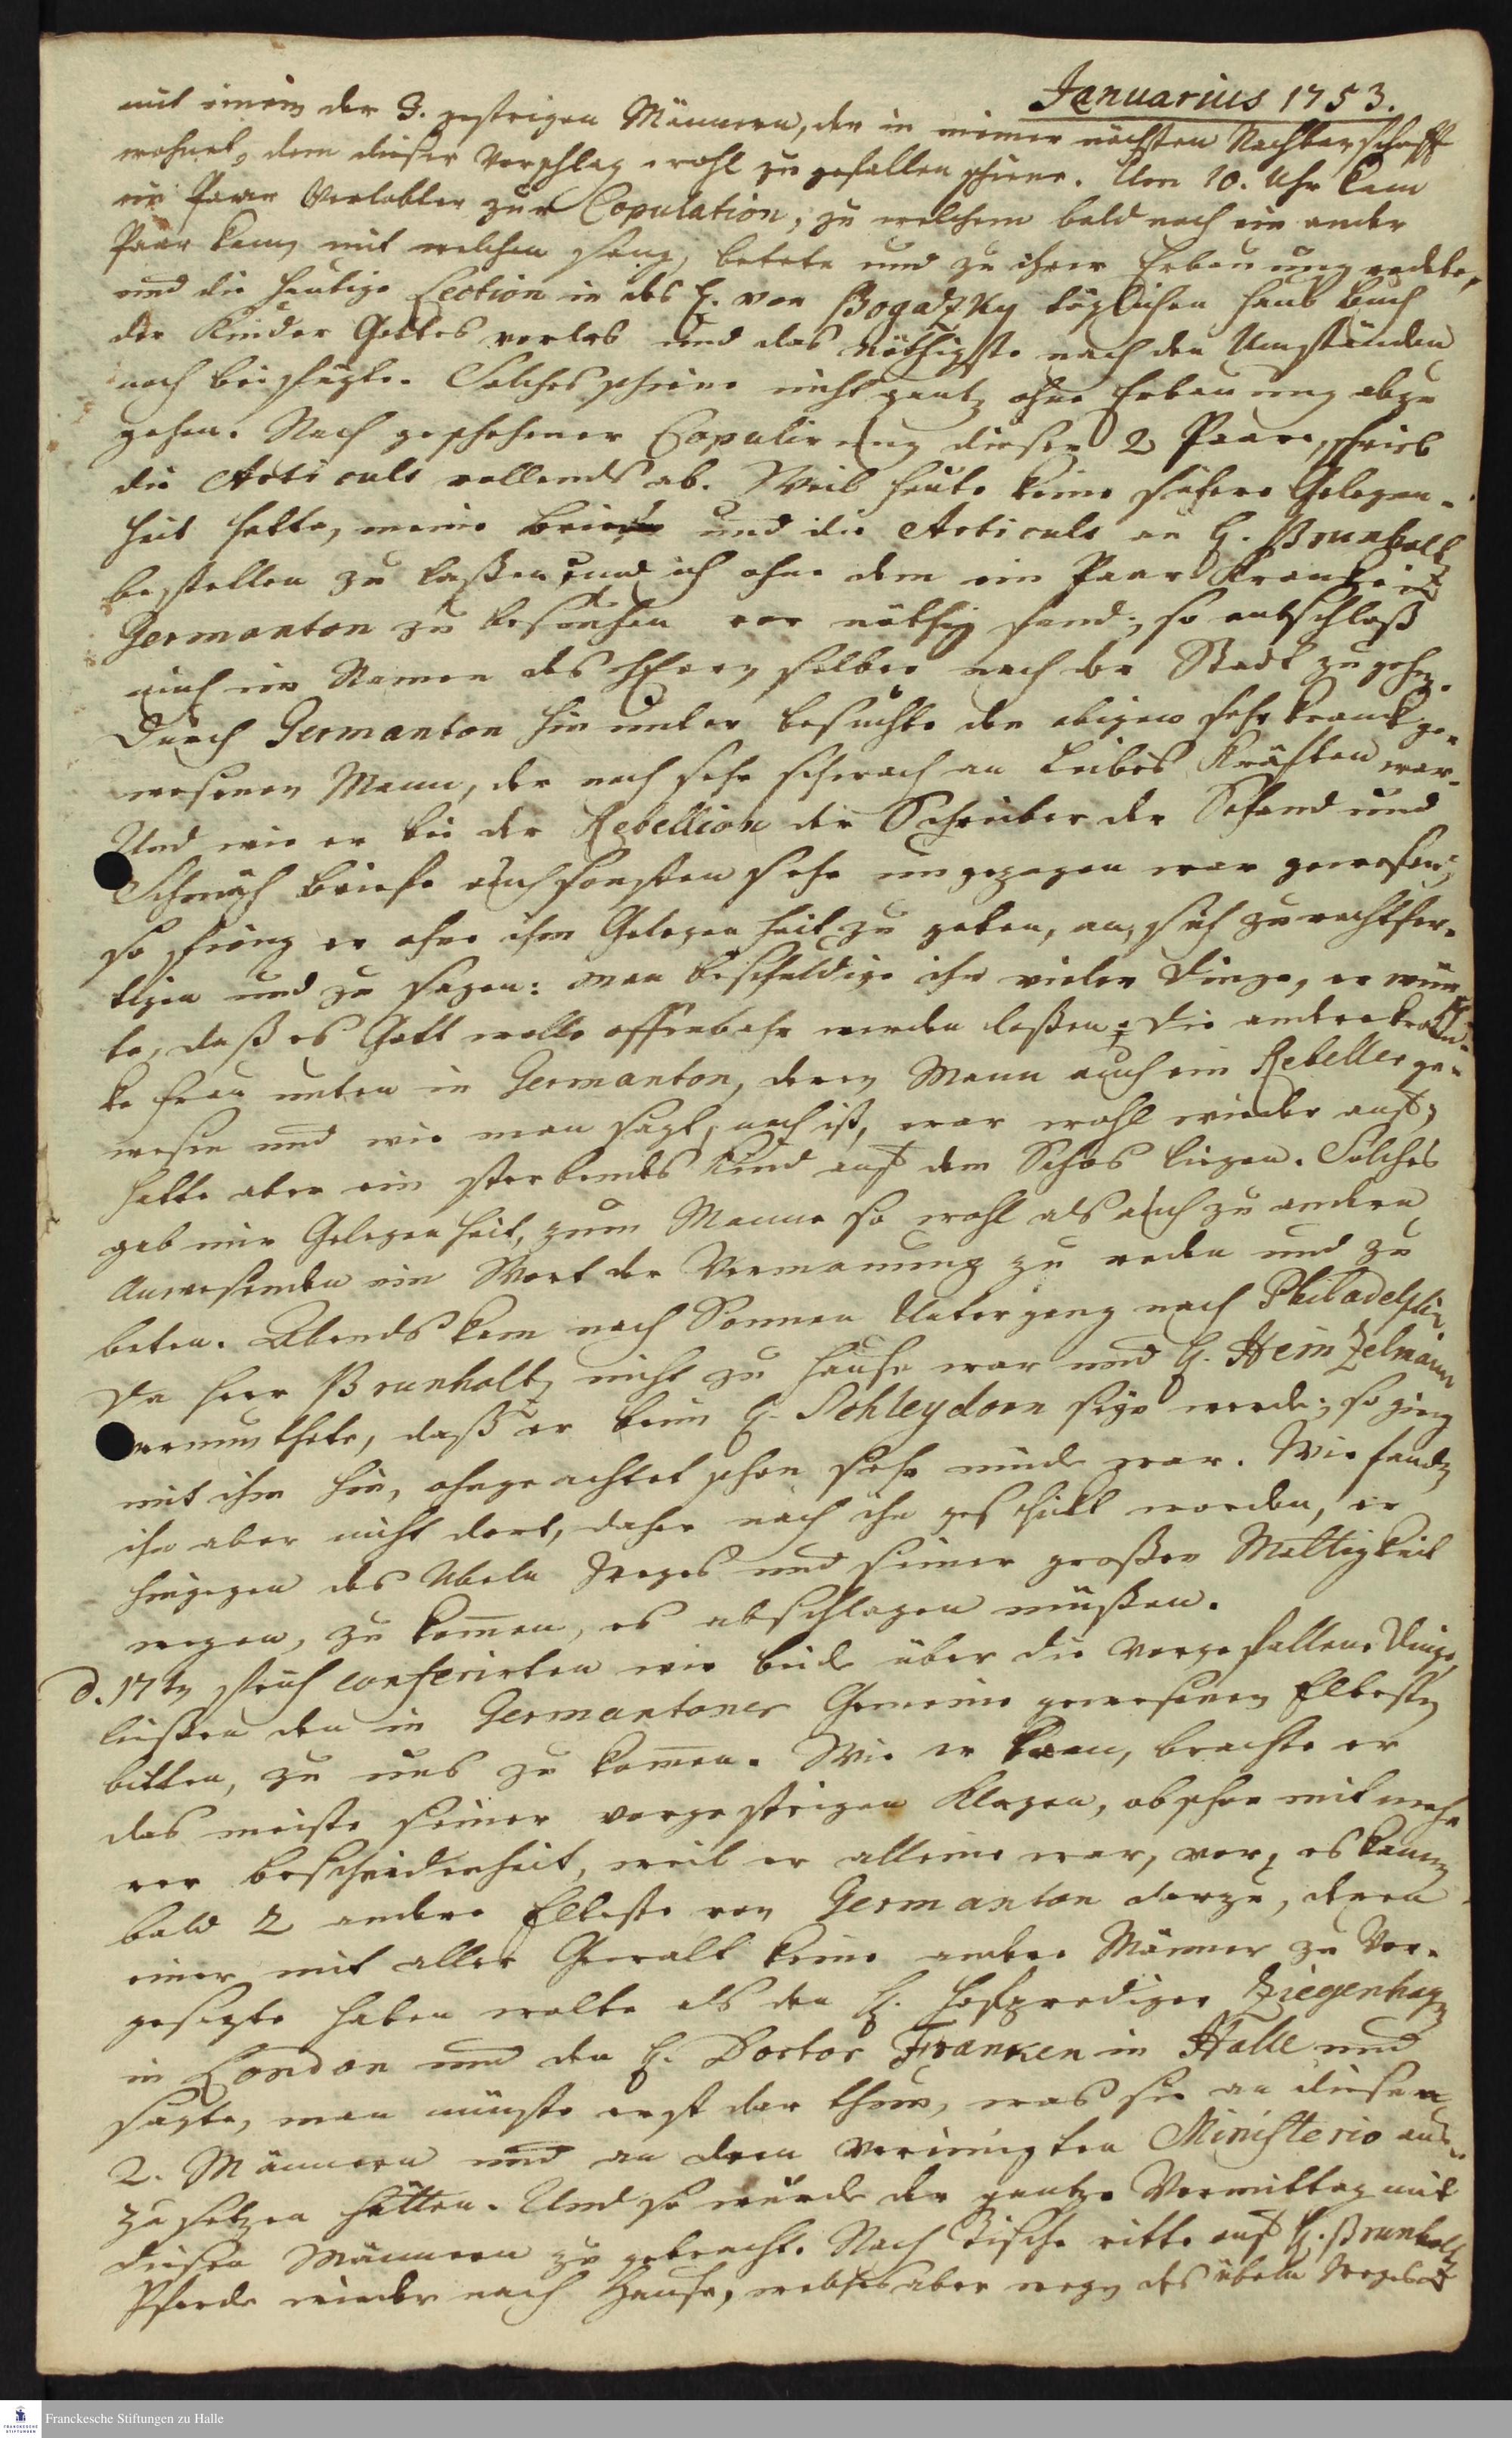 Januarius 1753.
mit einem der 3. gestrigen Männern, der in meiner nächsten Nachbarschafft
wohnet, dem dieser Vorschlag wohl zu gefallen schiene. Um 10. Uhr kam
ein Paar Verlobter zur Copulation, zu welchem bald noch ein ander
Paar kam, mit welchen sang, betete und zu ihrer Erbauung redete,
und die heutige Lection in des H. von Bogatzky täglichen Haus Buch
der Kinder Gottes verlas und das nöthigste nach den Umständen
noch beifügte. Solches schiene nicht gantz ohne Erbauung abzu
gehen. Nach geschehener Copulirung dieser 2 Paare, schrieb
die Articuls vollends ab. Weil heute keine sichere Gelegen-
heit hatte, meine Briefe und die Articuls an H. Brunholtz
bestellen zu laßen und ich ohne dem ein Paar Krancke in
Germanton zu besuchen vor nöthig fand; so entschloß
mich im Namen des HErrn selber nach der Stadt zu gehn.
Durch Germanton hin unter besuchte den obigen sehr kranck ge-
wesenen Mann, der noch sehr schwach an Leibes Kräften war.
Und wie er bei der Rebellion der Schreiber der Schand und
Schmäh Briefe auch sonsten sehr ungezogen war gewesen;
so fieng er ohne ihm Gelegenheit zu geben, an, sich zu rechtfer-
tigen und zu sagen: man beschuldige ihn vieler Dinge, er wünsch
te, daß es Gott wolle offenbahr werden laßen; die andere kran-
ke Frau unten in Germanton, deren Mann auch ein Rebeller ge-
wesen und wie man sagt, noch ist, war wohl wieder auf,
hatte aber ein sterbendes Kind auf dem Schos liegen. Solches
gab mir Gelegenheit, zum Manne so wohl als auch zu andern
Anwesenden ein Wort der Vermanung zu reden und zu
beten. Abends kam nach Sonnen Untergang nach Philadelphia
Da Herr Brunholtz nicht zu Hause war und H. Heinzelmann
vermuthete, daß er beim H. Schleydorn seyn werde; so ging
mit ihm hin, ohngeachtet schon sehr müde war. Wir fanden
ihn aber nicht dort, daher nach ihn geschickt worden, er
hingegen des Ubeln Weges und seiner großen Mattigkeit
wegen, zu kom̅en, es abschlagen müßen.
d. 17tn früh conferirten wir beide über die vorgefallene Dinge,
ließen den in Germantoner Gemeine gewesenen Eltesten
bitten, zu uns zu kom̅en. Wie er kam, brachte er
das meiste seiner vorgestrigen Klagen, obschon mit mehre
rer Bescheidenheit, weil er alleine war, vor, es kamen
bald 2 andere Elteste von Germanton darzu, deren
einer mit aller Gewalt keine andere Männer zu Vor-
gesetzte haben wolte als den H. Hofprediger Ziegenhagen
in London und den H. Doctor Franken in Halle und
sagte, man müste erst dar thun, was sie an diesen
2. Männern und an dem Vereinigten Ministerio aus-
zu setzen hätten. Und so wurde der gantze Vormittag mit
diesen Männern zu gebracht. Nach Tische ritte auf H. Brunholtz
Pferde wieder nach Hause, welches aber wegen des übeln Weges
Franckesche Stiftungen zu Halle